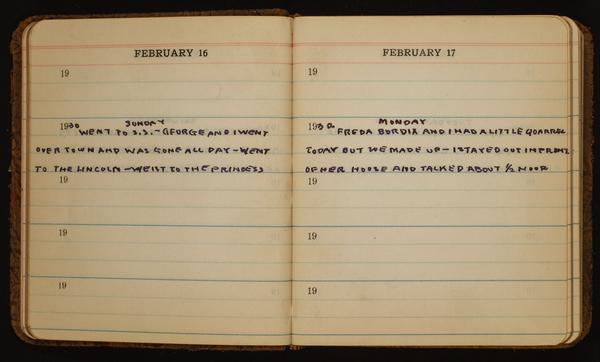 FEBRUARY 16
19
1930 SUNDAY
WENT TO S.S. - GEORGE AND I WENT
OVER TOWN AND WAS GONE ALL DAY - WENT
TO THE LINCOLN - WENT TO THE PRINCESS
19
19
19
FEBRUARY 17
19
1930 MONDAY
FREDA BORDIX AND I HAD A LITTLE QOARREL
TODAY BUT WE MADE UP - I STAYED OUT IN FRONT
OF HER HOUSE AND TALKED ABOUT ½ HOOR
19
19
19